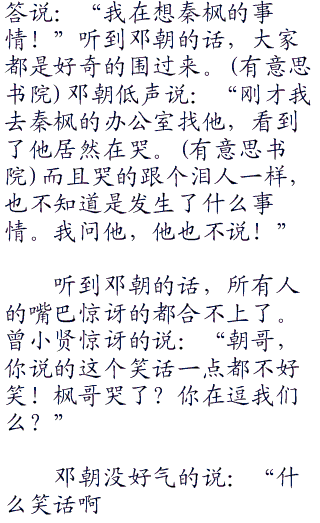 答说：“我在想秦枫的事
情！”听到邓朝的话，大家
都是好奇的围过来。(有意思
书院)邓朝低声说：“刚才我
去秦枫的办公室找他，看到
了他居然在哭。(有意思书
院)而且哭的跟个泪人一样，
也不知道是发生了什么事
情。我问他，他也不说！”
听到邓朝的话，所有人
的嘴巴惊讶的都合不上了。
曾小贤惊讶的说：“朝哥，
你说的这个笑话一点都不好
笑！枫哥哭了？你在逗我们
么？”
邓朝没好气的说：“什
么笑话啊